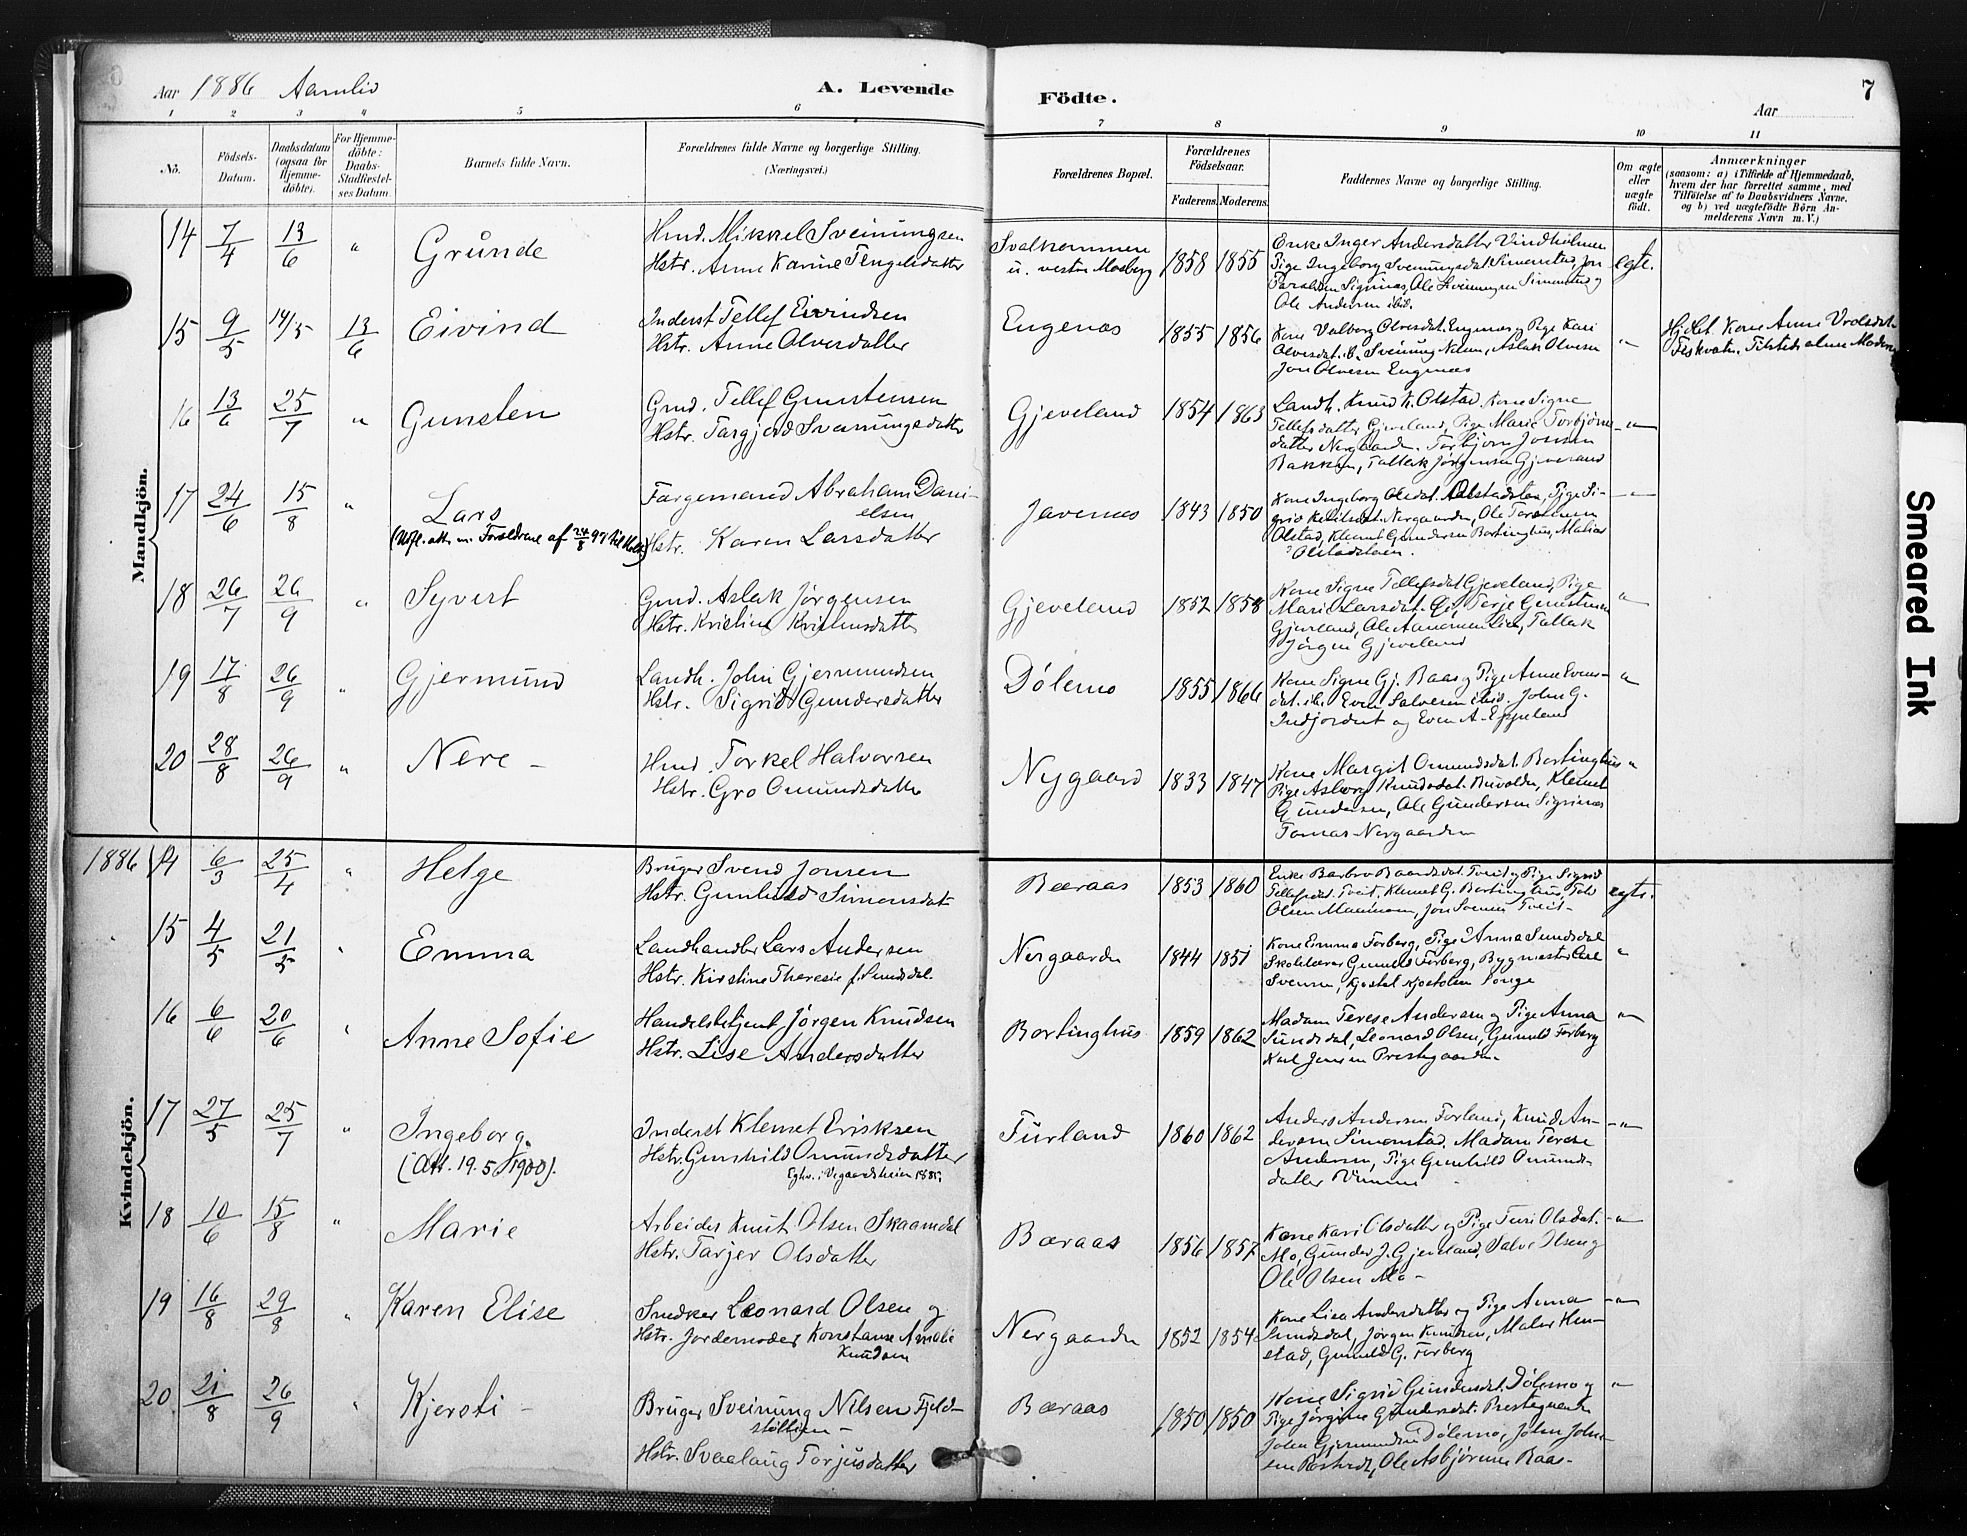 Aar 1886 Aamlid
A. Levende
Födte.
Aar
7
1 2 3 4 5 6 7 8 9 10 11
No.
Födsels-
Datum.
Daabsdatum
(ogsaa for
Hjemme-
döbte).
For Hjemme-
döbte:
Daabs-
Stadfæstel-
ses Datum.
Barnets fulde Navn.
Forældrenes fulde Navne og borgerlige Stilling.
(Næringsvei.)
Forældrenes Bopæl.
Forældrenes
Födselsaar.
Faderens. Moderens.
Faddernes Navne og borgerlige Stilling.
Om ægte
eller
uægte
födt.
Anmærkninger
(saasom: a) i Tilfælde af Hjemmedaab,
hvem der har forrettet samme, med
Tilföielse af to Daabsvidners Navne.
og b) ved uægtefödte Börn An-
melderens Navn m. V.)
Mandkjön.
14 7/4 13/6 " Grunde
Hmd. Mikkel Sveinungsen
Hstr. Anne Karine Tengelsdatter
Svalkommen
u. vestre Mosberg 1858 1855
Enke Inger Andersdatter Vindholmen
Pige Ingeborg Sveinungsdat. Simonstad, Jon
Ole Sveinungsen Simonstad og
Ole Andersen ibid.
egte.
15 9/5 14/5 13/6 Eivind
Inderst Tellef Eivindsen
Hstr. Anne Olvesdatter
Engenæs 1855 1856
Kone Valborg Olvesdat. Engenæs og Pige Kari
Olvesdat. Sveinung Nelsen, Aslak Olvesen
Jon Olvesen Engenæs
"
Hjdbt. Kone Anne
Fiskvatn. Tilstede alene Moderen
16 13/6 25/7 " Gunsten
Gmd. Tellef Gunstensen
Hstr. Targjerd Sveinungsdatter
Gjeveland 1854 1863
Landh. Knud K. Olstad. Kone Signe
Tellefsdatter Gjeveland, Pige Marie Torbjörns-
datter Nergaarden. Torbjorn Jonsen
Bakken, Tallak Jörgensen Gjeveland
"
17 24/6 15/8 " Lars
(Udfl. att. m. Forældrene af 24/8 97 til Holt)
Fargemand Abraham Dani-
elsen
Hstr. Karen Larsdatter
Javenæs 1843 1850
Kone Ingeborg Olsdat. Olstadsten, Pige Si-
grid Nergaarden, Ole
Olstad, Klemet Gundersen Bortinghus, Matias
Olstadstoen.
"
18 26/7 26/9 " Syvert
Gmd. Aslak Jörgensen
Hstr. Kristine
Gjeveland 1852 1858
Kone Signe Tellefsdat. Gjeveland, Pige
Marie Larsdat. Terje Gunstensen
Gjeveland, Ole Tallak
Jörgen Gjeveland
"
19 17/8 26/9 " Gjermund
Landh. John Gjermundsen
Hstr. Sigrid Gundersdatter
Dölemo 1855 1866
Kone Signe Gj. Baas og Pige Anne Evens-
dat. ib. Even Salvesen ibid. John G.
Indjordet og Even A. Eppeland
"
20 28/8 26/9 " Nere -
Hmd. Torkel Halvorsen
Hstr. Gro Omundsdatter
Nygaard 1833 1847
Kone Margit Omundsdat. Bortinghus
Pige Asborg Knudsdat. Klemet
Gundersen, Ole Gundersen Sigrinæs
Tomas Nergaarden
"
Kvindekjön.
1886 14 6/3 25/4 " Helge
Bruger Svend Jonsen
Hstr. Gunhild Simonsdat.
Bæraas 1853 1860
Enke Barbro Baardsdat. Tveit og Pige Sigrid
Tellefsdat. Tveit, Klemet G. Bortinghus,
Olsen Jon Svensen Tveit -
egte.
15 4/5 21/5 " Emma
Landhandler Lars Andersen
Hstr. Kirstine Theresie f. Sundsdal.
Nergaarden 1844 1851
Kone Emma Forberg, Pige Anna Sundsdal
Skolelærer Gunuld Forberg, Bygmester Carl
Svensen, Kjostel Kjostolsen Ponge
"
16 6/6 20/6 " Anne Sofie
Handelsbetjent Jörgen Knudsen
Hstr. Lise Andersdatter
Bortinghus 1859 1862
Madam Terese Andersen og Pige Anna
Sundsdal, Leonard Olsen, Gunuld Forberg
Karl Jensen Prestegaarden
"
17 27/5 25/7 " Ingeborg.
(Att. 19.5.1900).
Inderst Klemet Eriksen
Hstr. Gunhild Omundsdatter
Egtev. i Vegaardsheien 1885
Furland 1860 1862
Anders Andersen Forland, Knud An-
dersen Simonstad. Madam Terese
Andersen, Pige Gunhild Omunds-
datter
"
18 10/6 15/8 " Marie
Arbeider Knut Olsen Skaamdal
Hstr. Tarjer Olsdatter
Bæraas 1856 1857
Kone Kari Olsdatter og Pige Turi Olsdat.
Mo, Gunder J. Gjeveland, Salve Olsen og
Ole Olsen Mo -
"
19 16/8 29/8 " Karen Elise
Snedker Leonard Olsen og
Hstr. Jordemoder Konstanse Amalie
Knudsen
Nergaarden 1852 1854
Kone Lisa Andersdatter og Pige Anna
Sundsdal, Jörgen Knudsen, Maler Hen-
stad, Gunuld G. Forberg
"
20. 21/8 26/9 " Kjersti -
Bruger Sveinung Nilsen Fjeld-
stöltjen -
Hstr. Svaalaug Torjusdatter
Bæraas 1850 1850
Kone Sigrid Gundersdat. Dölemo og
Pige Jörgine Gundersdat. Prestegaarden
John Gjermundsen Dölemo, John John-
sen Ole Asbjörnsen Baas -
"
Smeared Ink